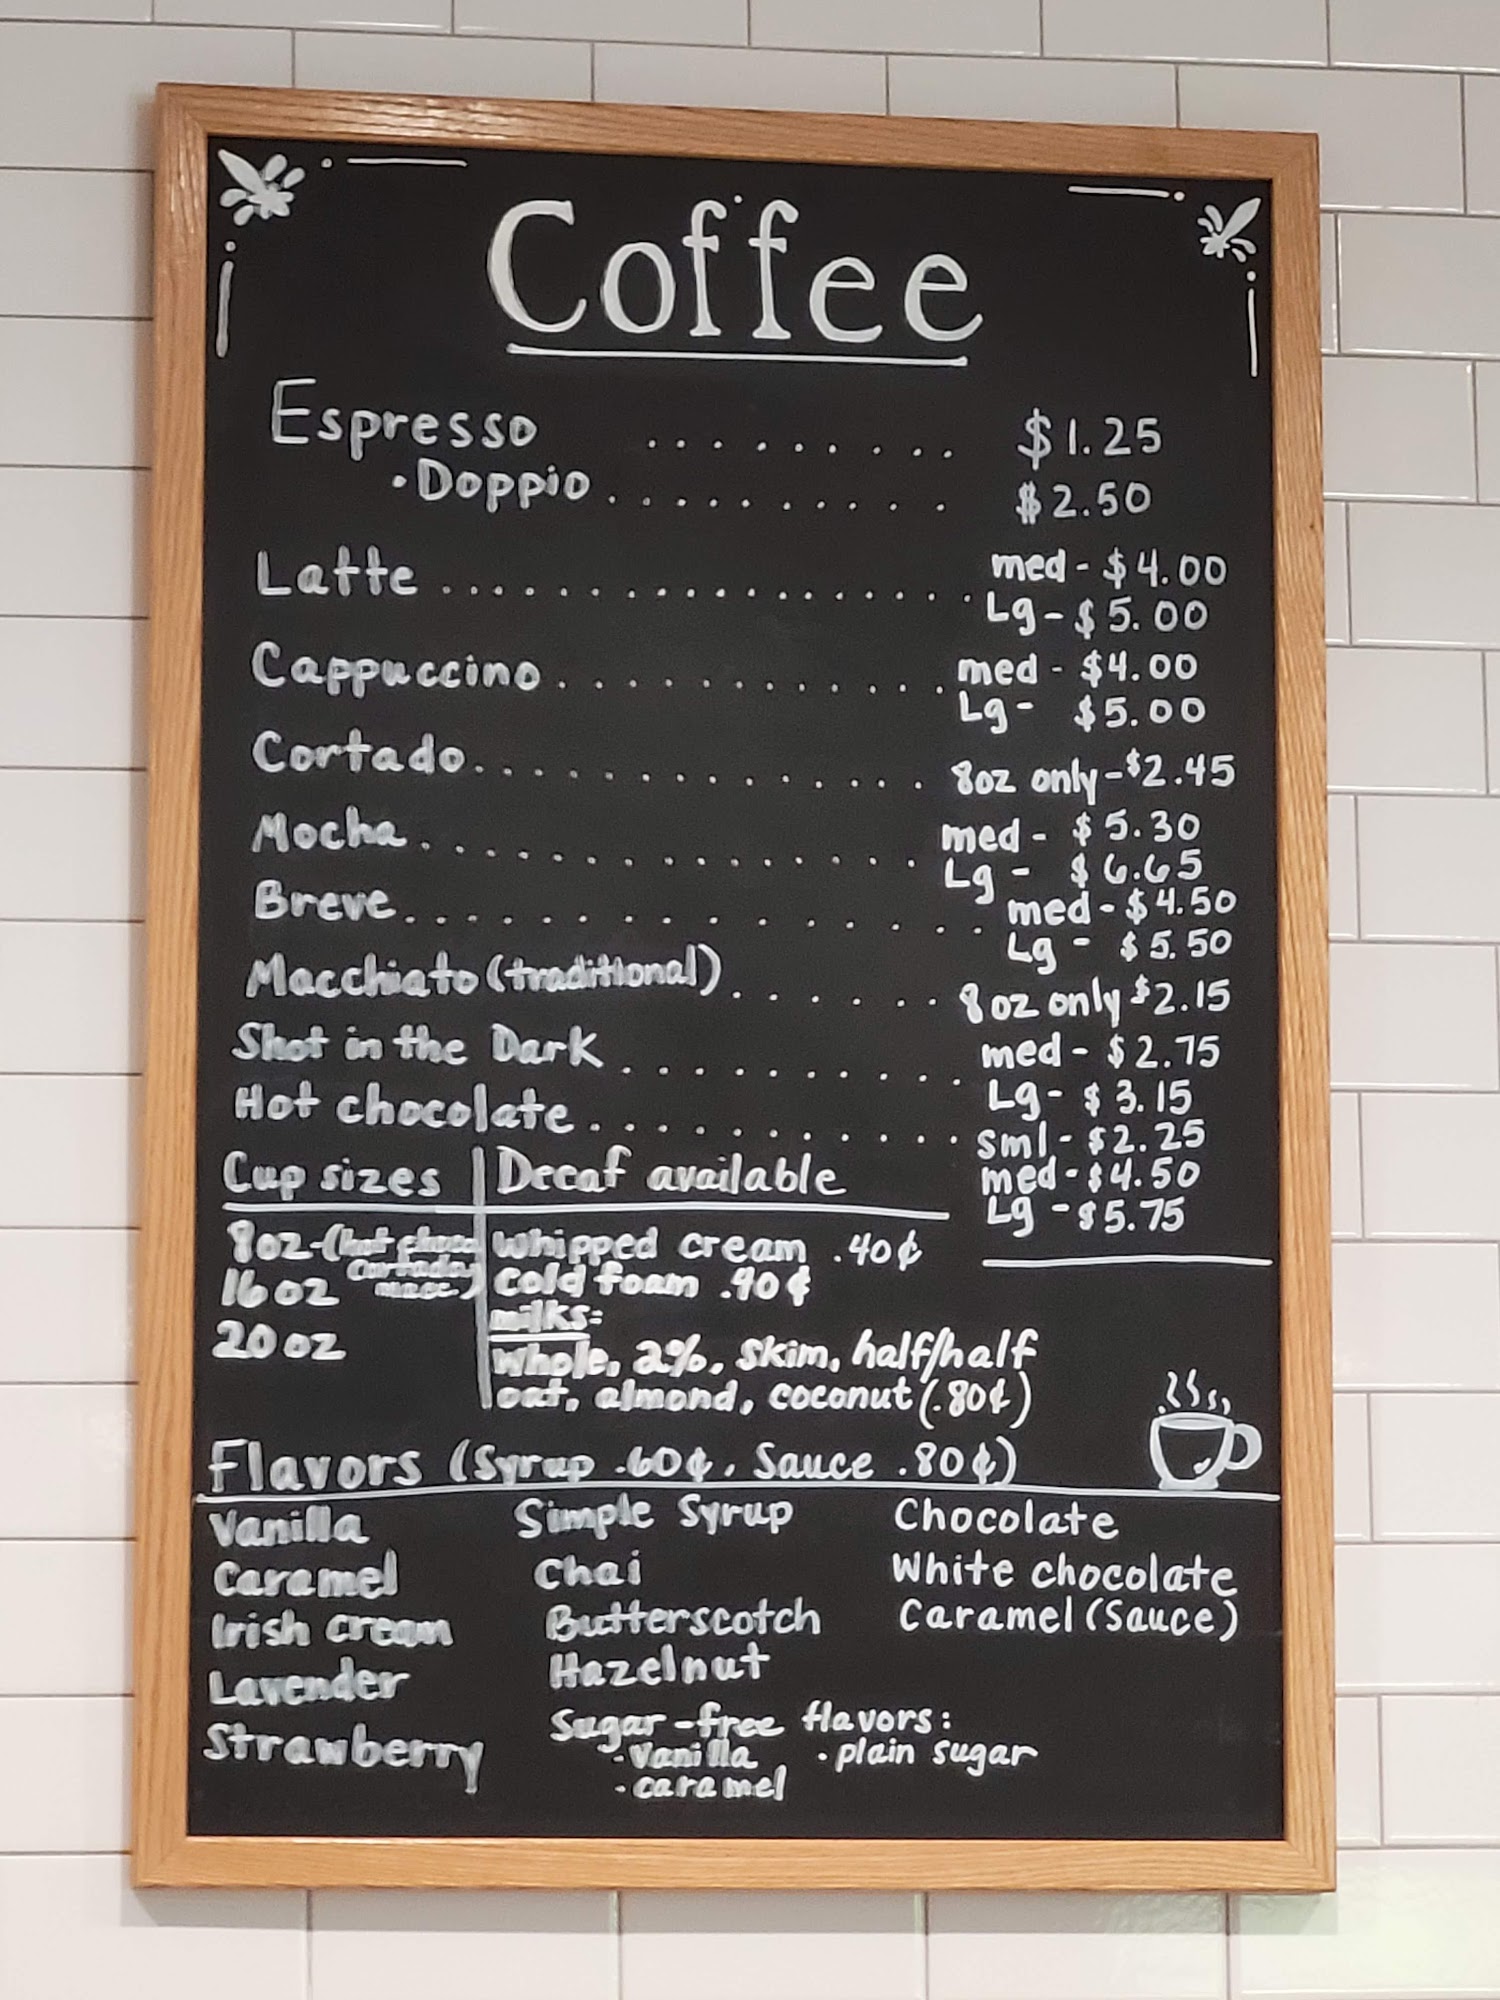 Coffee
Espresso ......... $1.25
•Doppio .......... $2.50
Latte .................. med - $4.00
Lg - $5.00
Cappuccino ............. med - $4.00
Lg - $5.00
Cortado ............... 8oz only - $2.45
Mocha ................ med - $5.30
Lg - $6.65
Breve ................ med - $4.50
Lg - $5.50
Macchiato (traditional) ....... 8oz only $2.15
Shot in the Dark .......... med - $2.75
Lg - $3.15
Hot chocolate ............ sml - $2.25
med - $4.50
Lg - $5.75
Cup sizes
8oz-(hot choco
Cortado
macc)
16oz
20oz
Decaf available
Whipped cream .40¢
Cold foam .40¢
milks:
whole, 2%, skim, half/half
oat, almond, coconut (.80¢)
Flavors (Syrup .60¢, Sauce .80¢)
Vanilla
Caramel
Irish cream
Lavender
Strawberry
Simple Syrup
Chai
Butterscotch
Hazelnut
Sugar-free flavors:
·Vanilla ·plain sugar
·caramel
Chocolate
White chocolate
Caramel (Sauce)